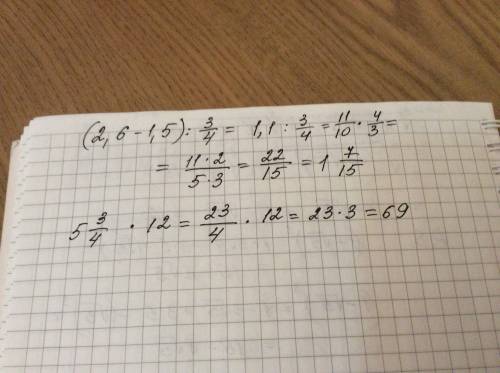 (2,6-1,5): 3/4 = 1,1 : 3/4 = 11/10 · 4/3 =
= 11·2/5·3 = 22/15 = 1 7/15
5 3/4 · 12 = 23/4 · 12 = 23·3 = 69